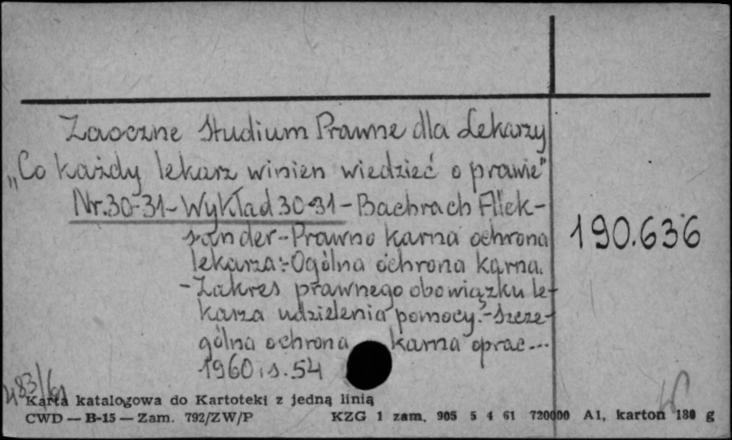 Zaoczne Studium Prawne dla Lekarzy
„Co każdy lekarz winien wiedzieć o prawie"
Nr. 30-31 - Wykład 30-31 - Bachrach Alek-
sander - Prawno karna ochrona
190.636
lekarza: - Ogólna ochrona karna.
- Zakres prawnego obowiązku le-
karza udzielenia pomocy. - Szcze-
gólna ochrona karna oprac...
1960, s. 54
483/61
Karta katalogowa do Kartoteki z jedną linią
CWD — B-15 — Zam. 792/ZW/P KZG 1 zam. 905 5 4 61 720000 A1, karton 180 g